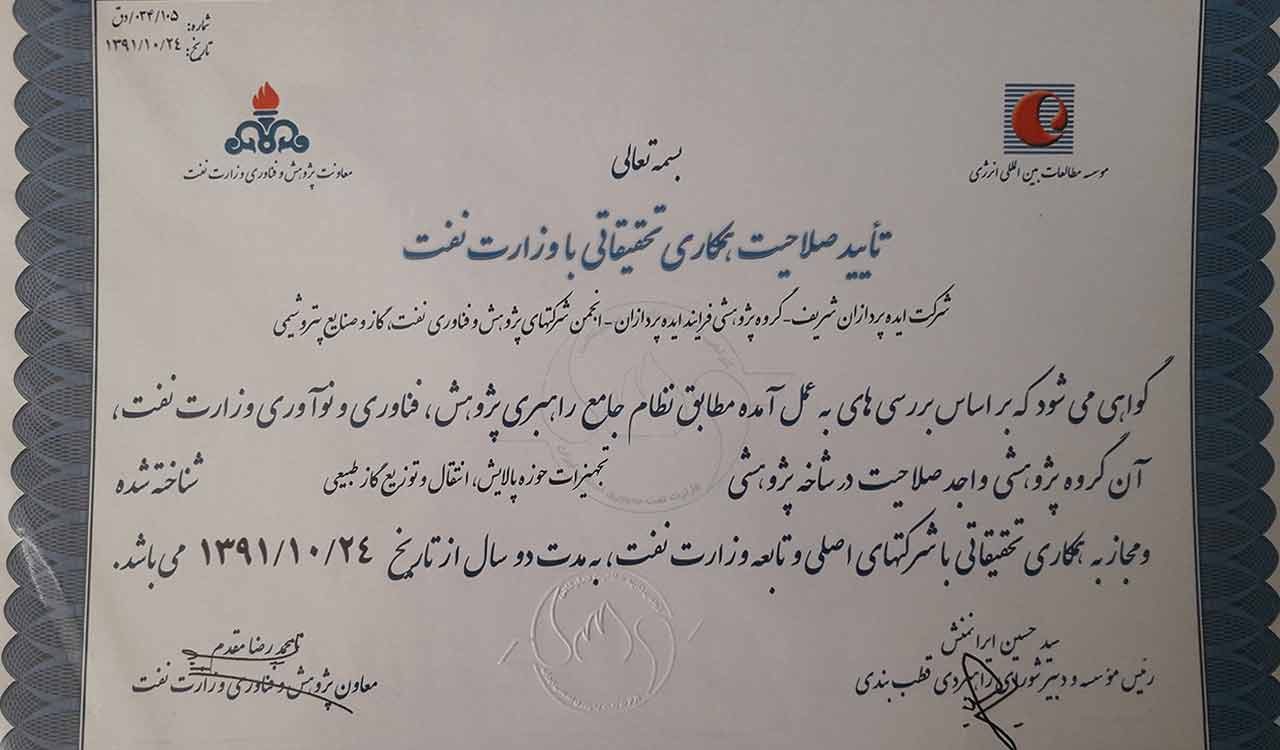 شماره: ۰۳۴/۱۰۵/دق
تاریخ: ۱۳۹۱/۱۰/۲۴
موسسه مطالعات بین المللی انرژی
معاونت پژوهش و فناوری وزارت نفت
بسمه تعالی
تأیید صلاحیت همکاری تحقیقاتی با وزارت نفت
شرکت ایده پردازان شریف - گروه پژوهشی فرایند ایده پردازان - انجمن شرکتهای پژوهش و فناوری نفت، گاز و صنایع پتروشیمی
گواهی می شود که بر اساس بررسی های به عمل آمده مطابق نظام جامع راهبری پژوهش، فناوری و نوآوری وزارت نفت،
آن گروه پژوهشی واجد صلاحیت در شاخه پژوهشی تجهیزات حوزه پالایش، انتقال و توزیع گاز طبیعی شناخته شده
و مجاز به همکاری تحقیقاتی با شرکتهای اصلی و تابعه وزارت نفت، به مدت دو سال از تاریخ ۱۳۹۱/۱۰/۲۴ می باشد.
سید حسین ایرانمنش
رئیس مؤسسه و دبیر شورای راهبردی قطب بندی
محمد رضا مقدم
معاون پژوهش و فناوری وزارت نفت